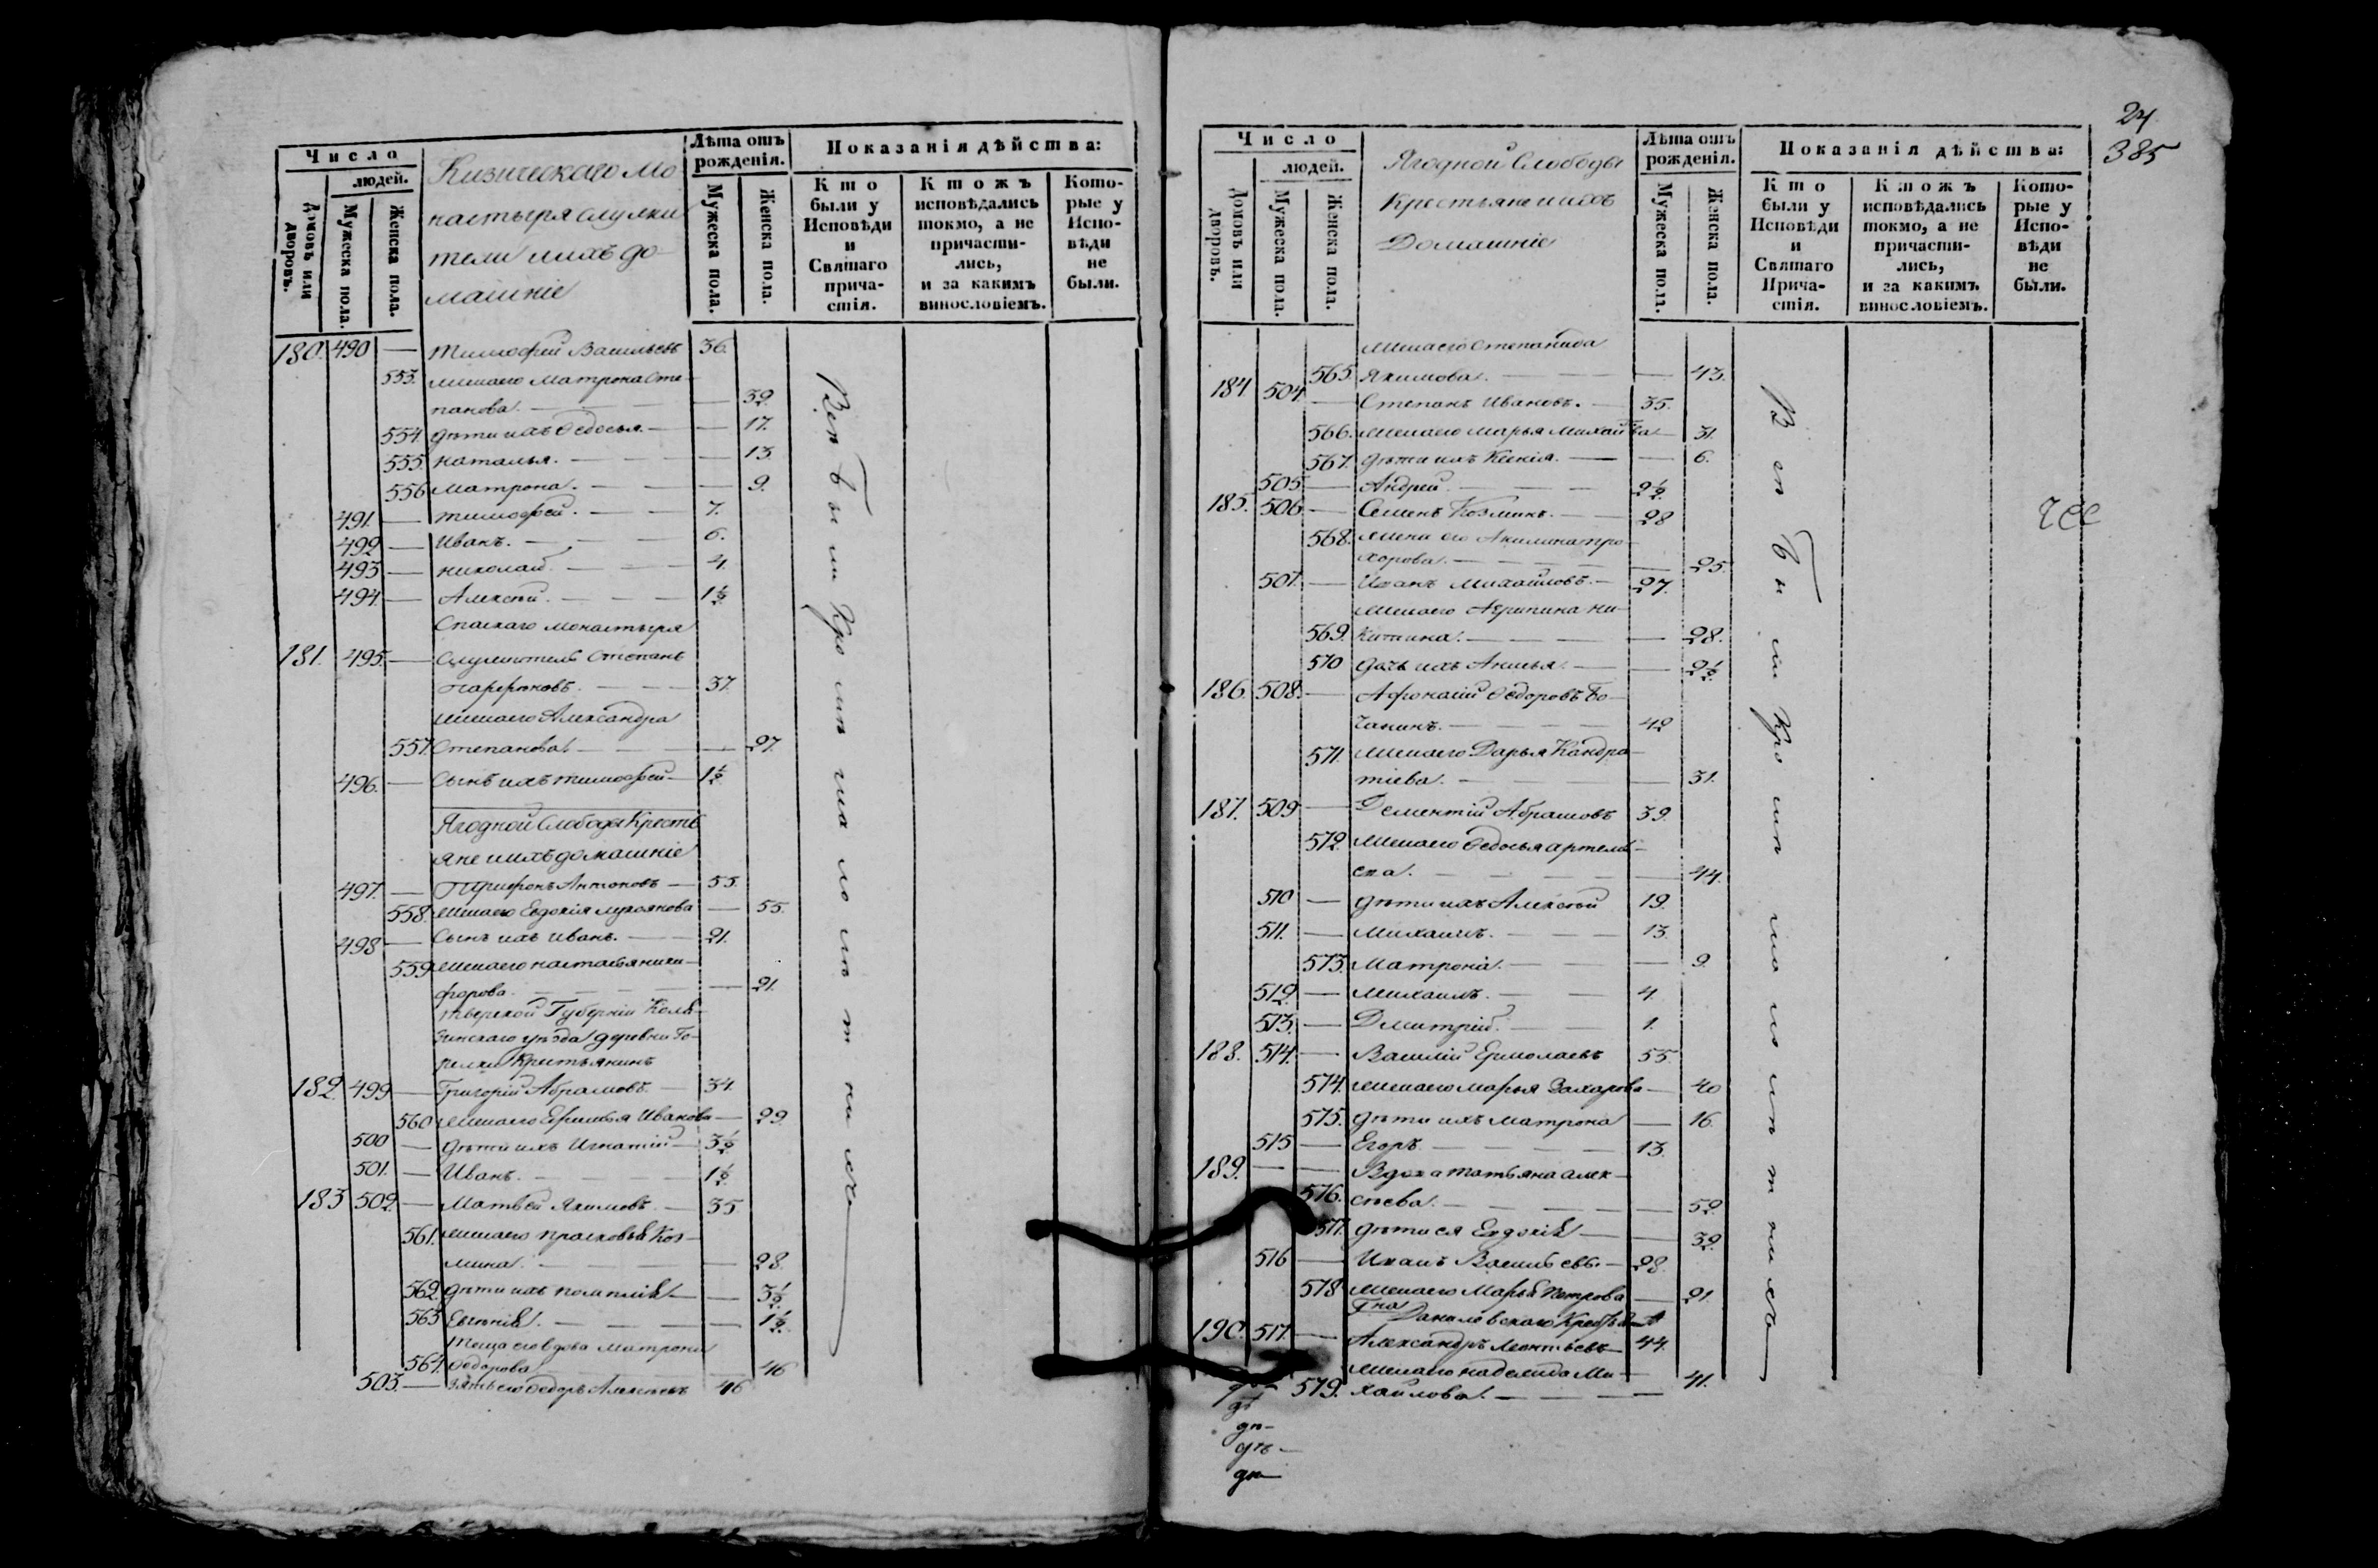 Число
людей.
Домовъ или дворовъ.
Мужеска пола.
Женска пола.
Кизическаго мо
настыря служи
тели и ихъ до-
машніе
Лѣта отъ рожденія.
Мужеска пола.
Женска пола.
Показанія дѣйства:
Кто были у Исповѣди и Святаго прича-стія.
Ктожъ исповѣдались токмо, а не причасти-лись, и за какимъ винословіемъ.
Кото-рые у Испо-вѣди не были.
180. 490 — Тимофей Васильевъ 36.
553. жена его Матрона Сте-
панова. — — 39.
554. дѣти ихъ Федосья. — — 17.
555. Наталья. — — 13.
556. Матрона. — — 9.
491. — Тимофей. — 7.
492. — Иванъ. — 6.
493. — Николай. — 4.
494. — Алексѣй. — 1½
Спаскаго монастыря
181. 495. — служитель Степанъ
Парфеновъ. — 37.
жена его Александра
557. Степанова. — — 27.
496. — сынъ ихъ Тимофей — 1½
Ягодной Слободы Кресть
яне и ихъ домашніе
497. — Трифонъ Антоновъ — 55.
558. жена его Евдокія Лукоянова — 55.
498 — сынъ ихъ Иванъ. — 21.
559 жена его Настасья Ники-
форова. — — 21.
Тверской Губерніи Коля-
зинскаго уѣзда деревни Го-
релки Крестьянинъ
182. 499 — Григорій Абрамовъ. — 34.
560 жена его Ефимья Иванова — 29.
500 — дѣти ихъ Игнатій — 3½
501. — Иванъ. — 1½
183 502. — Матвѣй Якимовъ. — 35
561. жена его Прасковья Коз-
мина. — — 28.
562. дѣти ихъ — — 3½
563 Евгенія. — — 1½
Теща его вдова Матрона
564. Федорова. — 46
503. — зять его Федоръ Алексѣевъ 46
Всѣ были кромѣ малолѣтнихъ
24
385
Число
людей.
Домовъ или дворовъ.
Мужеска пола.
Женска пола.
Ягодной Слободы
Крестьяне и ихъ
Домашніе
Лѣта отъ рожденія.
Мужеска пола.
Женска пола.
Показанія дѣйства:
Кто были у Исповѣди и Святаго Прича-стія.
Ктожъ исповѣдались токмо, а не причасти-лись, и за какимъ винословіемъ.
Кото-рые у Испо-вѣди не были.
жена его Степанида
565. Якимова. — — 43.
184 504. — Степанъ Ивановъ. — 35.
566. жена его Марья Михай ва — 31.
567. дѣти ихъ Ксенія. — — 6.
505 — Андрей. — 2½
185. 506 — Семенъ Козминъ. — 28
568. жена его Акилина Про-
хорова. — — 25.
507. — Иванъ Михайловъ. — 27.
жена его Агрипина Ни-
569. китина. — — 28.
570 дочь ихъ Анисья. — — 2½
186. 508. — Афонасій Федоровъ Бо-
чанинъ. — 42
571. жена его Дарья Кандра-
тіева. — — 31.
187. 509 — Дементій Абрамовъ 39.
572. жена его Федосья Артемь-
ева. — — 44.
510 — дѣти ихъ Алексѣй 19.
511. — Михаилъ. — 13.
573. Матрона. — — 9.
512. — Михаилъ. — 4.
513. — Дмитрій. — 1.
188. 514. — Василій Ермолаевъ 55.
574. жена его Марья Захарова — 40
575. дѣти ихъ Матрона — 16.
515 — Егоръ. — 13.
189. — — Вдова Татьяна Алек-
576. сѣева. — — 52.
577. дѣти ея Евдокія — — 32.
516 — Иванъ Васильевъ. — 28.
578 жена его Марья Петрова — 21.
Гна Данилевскаго
190. 517. — Александръ Леонтьевъ — 44.
жена его Надежда Ми-
579. хайлова. — — 41.
Всѣ были кромѣ малолѣтнихъ
дѣ-
дѣ-
дѣ-